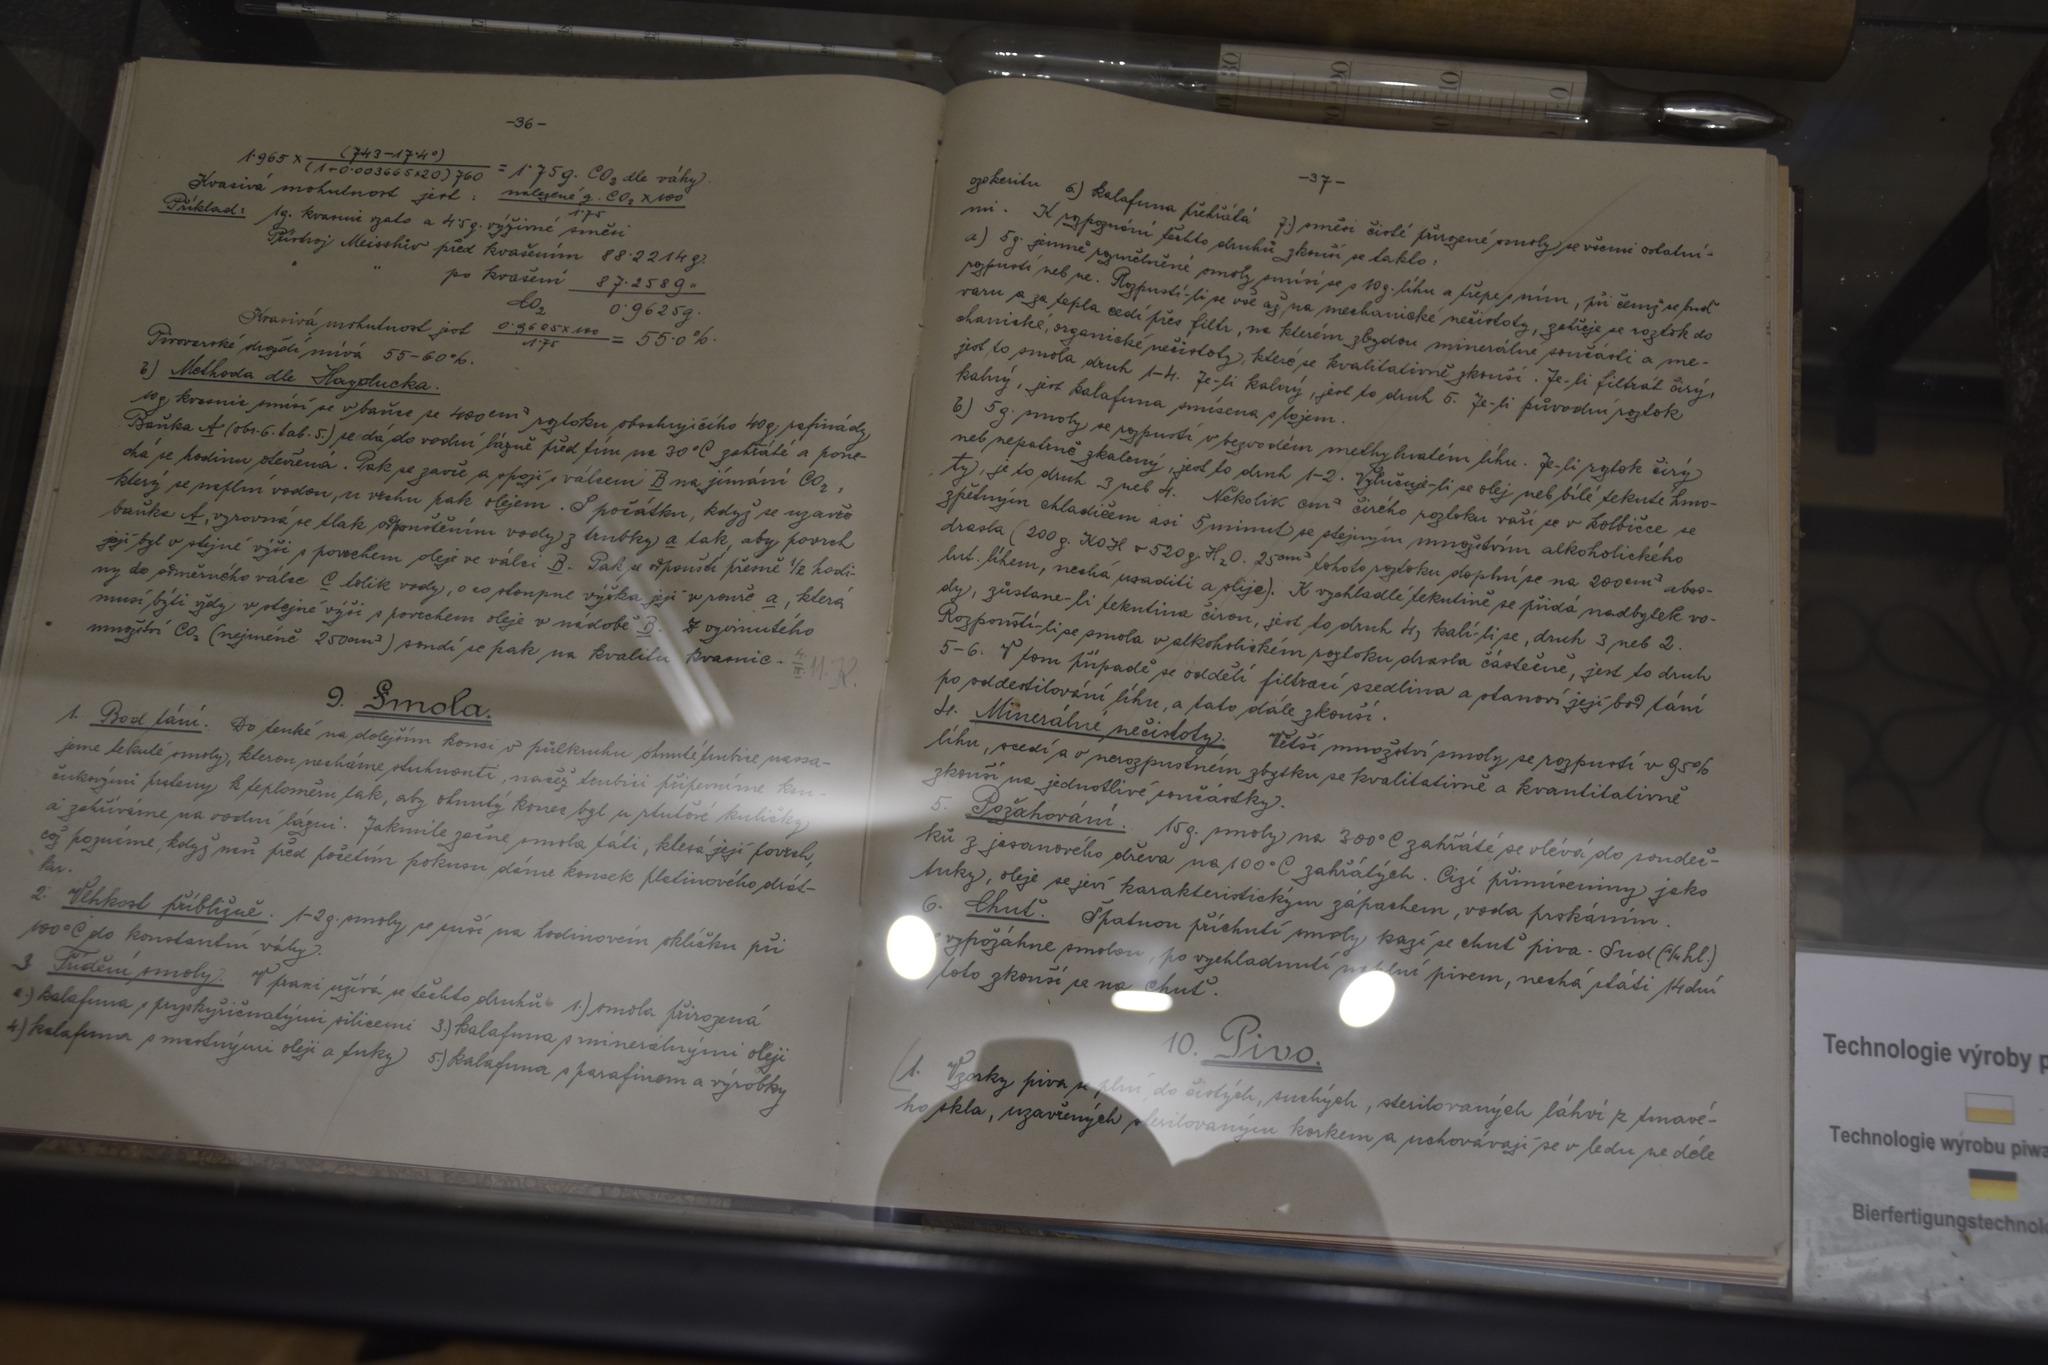 -36-
1·965 × (743-17·4°) / (1+0·003665×20)760 = 1·75g. CO₂ dle váhy.
Kvasivá mohutnost jest: nalezené g. CO₂ × 100 / 1·75
Příklad: 1g. kvasnic vzato a 4·5g. výživné směsi
Přístroj Meisslův před kvašením 88·2214g.
" " po kvašení 87·2589"
CO₂ 0·9625g.
Kvasivá mohutnost jest 0·9625×100 / 1·75 = 55·0%.
Pivovarské droždí mívá 55-60%.
b) Methoda dle Hayducka.
10g kvasnic smísí se v baňce se 400cm³ roztoku obsahujícího 40g. rafinády
Baňka A (obr. 6. tab. 5.) se dá do vodní lázně před tím na 30°C zahřáté a pone-
chá se hodinu otevřená. Pak se zavře a spojí s válcem B na jímání CO₂,
který se naplní vodou, u vrchu pak olejem. S počátku, když se uzavře
baňka A, vyrovná se tlak odpouštěním vody z trubky a tak, aby povrch
její byl v stejné výši s povrchem oleje ve válci B. Pak se odpouští přesně ½ hodi-
ny do odměrného válce C tolik vody, o co stoupne výška její v rouře a, která
musí býti vždy v stejné výši s povrchem oleje v nádobě B. Z vyvinutého
množství CO₂ (nejméně 250cm³) soudí se pak na kvalitu kvasnic.
9. Smola.
1. Bod tání. Do tenké na dolejším konci v půlkruhu ohnuté trubice nassa-
jeme tekuté smoly, kterou necháme stuhnouti, načež trubici připevníme kau-
čukovými prsteny k teploměru tak, aby ohnutý konec byl u rtuťové kuličky
a zahříváme na vodní lázni. Jakmile začne smola táti, klesá její povrch,
což poznáme, když naň před početím pokusu dáme kousek platinového drát-
ku.
2. Vlhkost přibližně. 1-2g. smoly se suší na hodinovém sklíčku při
100°C do konstantní váhy.
3 Třídění smoly. V praxi užívá se těchto druhů 1.) smola přirozená
2.) kalafuna s pryskyřičnatými silicemi 3.) kalafuna s minerálnými oleji
4.) kalafuna s mastnými oleji a tuky 5.) kalafuna s parafinem a výrobky
-37-
ozokeritu 6.) kalafuna přehřátá 7.) směsi čisté přirozené smoly se všemi ostatní-
mi. K rozpoznání těchto druhů zkouší se takto:
a) 5g. jemně rozmělněné smoly smísí se s 10g. líhu a třepe s ním, při čemž se buď
rozpustí neb ne. Rozpustí-li se vše až na mechanické nečistoty, zahřeje se roztok do
varu a za tepla cedí přes filtr, na kterém zbydou minerálné součásti a me-
chanické, organické nečistoty, které se kvalitativně zkouší. Je-li filtrát čirý,
jest to smola druh 1-4. Je-li kalný, jest to druh 5. Je-li původní roztok
kalný, jest kalafuna smísena s lojem.
b) 5g. smoly se rozpustí v bezvodém methylnatém líhu. Je-li roztok čirý
neb nepatrně zkalený, jest to druh 1-2. Vylučuje-li se olej neb bílé tekuté hmo-
ty, je to druh 3 neb 4. Několik cm³ čirého roztoku vaří se v kolbičce se
zpětným chladičem asi 5 minut se stejným množstvím alkoholického
drasla (200g. KOH v 520g. H₂O. 25cm³ tohoto roztoku doplní se na 200cm³ abso-
lut. líhem, nechá usaditi a slije). K vychladlé tekutině se přidá nadbytek vo-
dy, zůstane-li tekutina čirou, jest to druh 4, kalí-li se, druh 3 neb 2.
Rozpouští-li se smola v alkoholickém roztoku drasla částečně, jest to druh
5-6. V tom případě se oddělí filtrací ssedlina a stanoví její bod tání
po oddestilování líhu, a tato dále zkouší.
4. Minerálné nečistoty. Větší množství smoly se rozpustí v 95%
líhu, scedí a o nerozpustném zbytku se kvalitativně a kvantitativně
zkouší na jednotlivé součástky.
5. Požahování. 15g. smoly na 300°C zahřáté se vlévá do soudeč-
ků z jasanového dřeva na 100°C zahřátých. Cizí přimíseniny jako
tuky, oleje se jeví karakteristickým zápachem, voda prskáním.
6. Chuť. Špatnou příchutí smoly kazí se chuť piva. Sud (¼ hl.)
vypožáhne smolou, po vychladnutí naplní pivem, nechá státi 14 dní
toto zkouší se na chuť.
10. Pivo.
1. Vzorky piva se plní do čistých, suchých, sterilovaných láhví z tmavé-
ho skla, uzavřených sterilovaným korkem a uchovávají se v ledu ne déle
30 20 10 0
Technologie výroby p
Technologie wyrobu piwa
Bierfertigungstechnolo